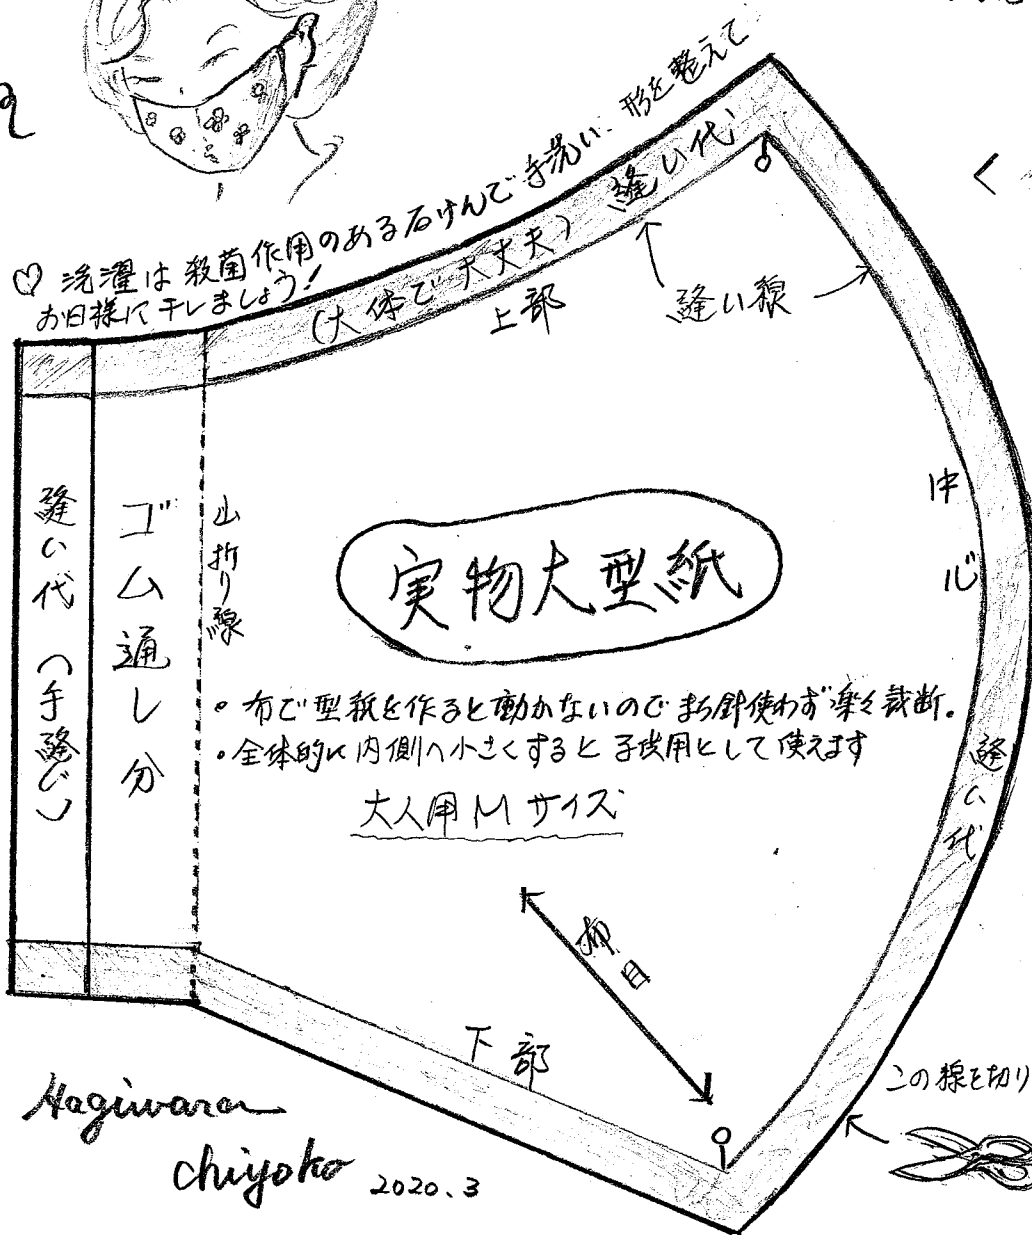 ♡ 洗濯は殺菌作用のある石けんで手洗い、形を整えて
お日様に干しましょう！
(大体で大丈夫) 縫い代
上部
縫い線
中心
縫い代
縫い代 (手縫い)
ゴム通し分
山折り線
実物大型紙
• 布で型紙を作ると動かないのでまち針使わず楽々裁断。
• 全体的に内側へ小さくすると子供用として使えます
大人用Mサイズ
布目
下部
この線を切り
Hagiwara
chiyoko 2020.3